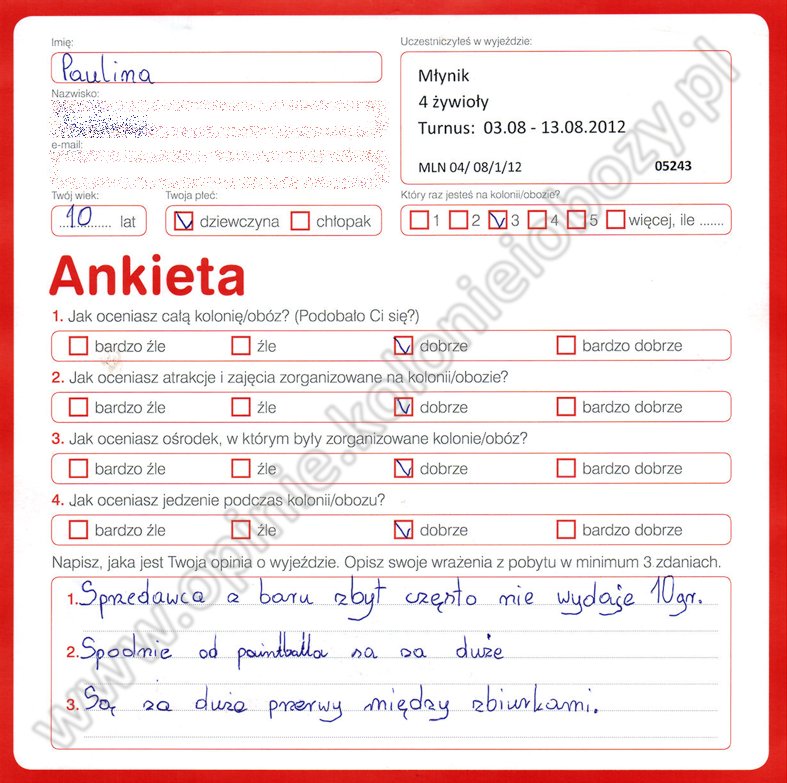 Imię:
Paulina
Nazwisko:
e-mail:
Twój wiek:
10 lat
Twoja płeć:
dziewczyna chłopak
Uczestniczyłeś w wyjeździe:
Młynik
4 żywioły
Turnus: 03.08 - 13.08.2012
MLN 04/ 08/1/12 05243
Który raz jesteś na kolonii/obozie?
1 2 3 4 5 więcej, ile .......
Ankieta
1. Jak oceniasz całą kolonię/obóz? (Podobało Ci się?)
bardzo źle źle dobrze bardzo dobrze
2. Jak oceniasz atrakcje i zajęcia zorganizowane na kolonii/obozie?
bardzo źle źle dobrze bardzo dobrze
3. Jak oceniasz ośrodek, w którym były zorganizowane kolonie/obóz?
bardzo źle źle dobrze bardzo dobrze
4. Jak oceniasz jedzenie podczas kolonii/obozu?
bardzo źle źle dobrze bardzo dobrze
Napisz, jaka jest Twoja opinia o wyjeździe. Opisz swoje wrażenia z pobytu w minimum 3 zdaniach.
1. Sprzedawca z baru zbyt często nie wydaje 10gr.
2. Spodnie od paintballa sa za duże
3. Są za duże przerwy między zbiurkami.
www.opinie.kolonieiobozy.pl